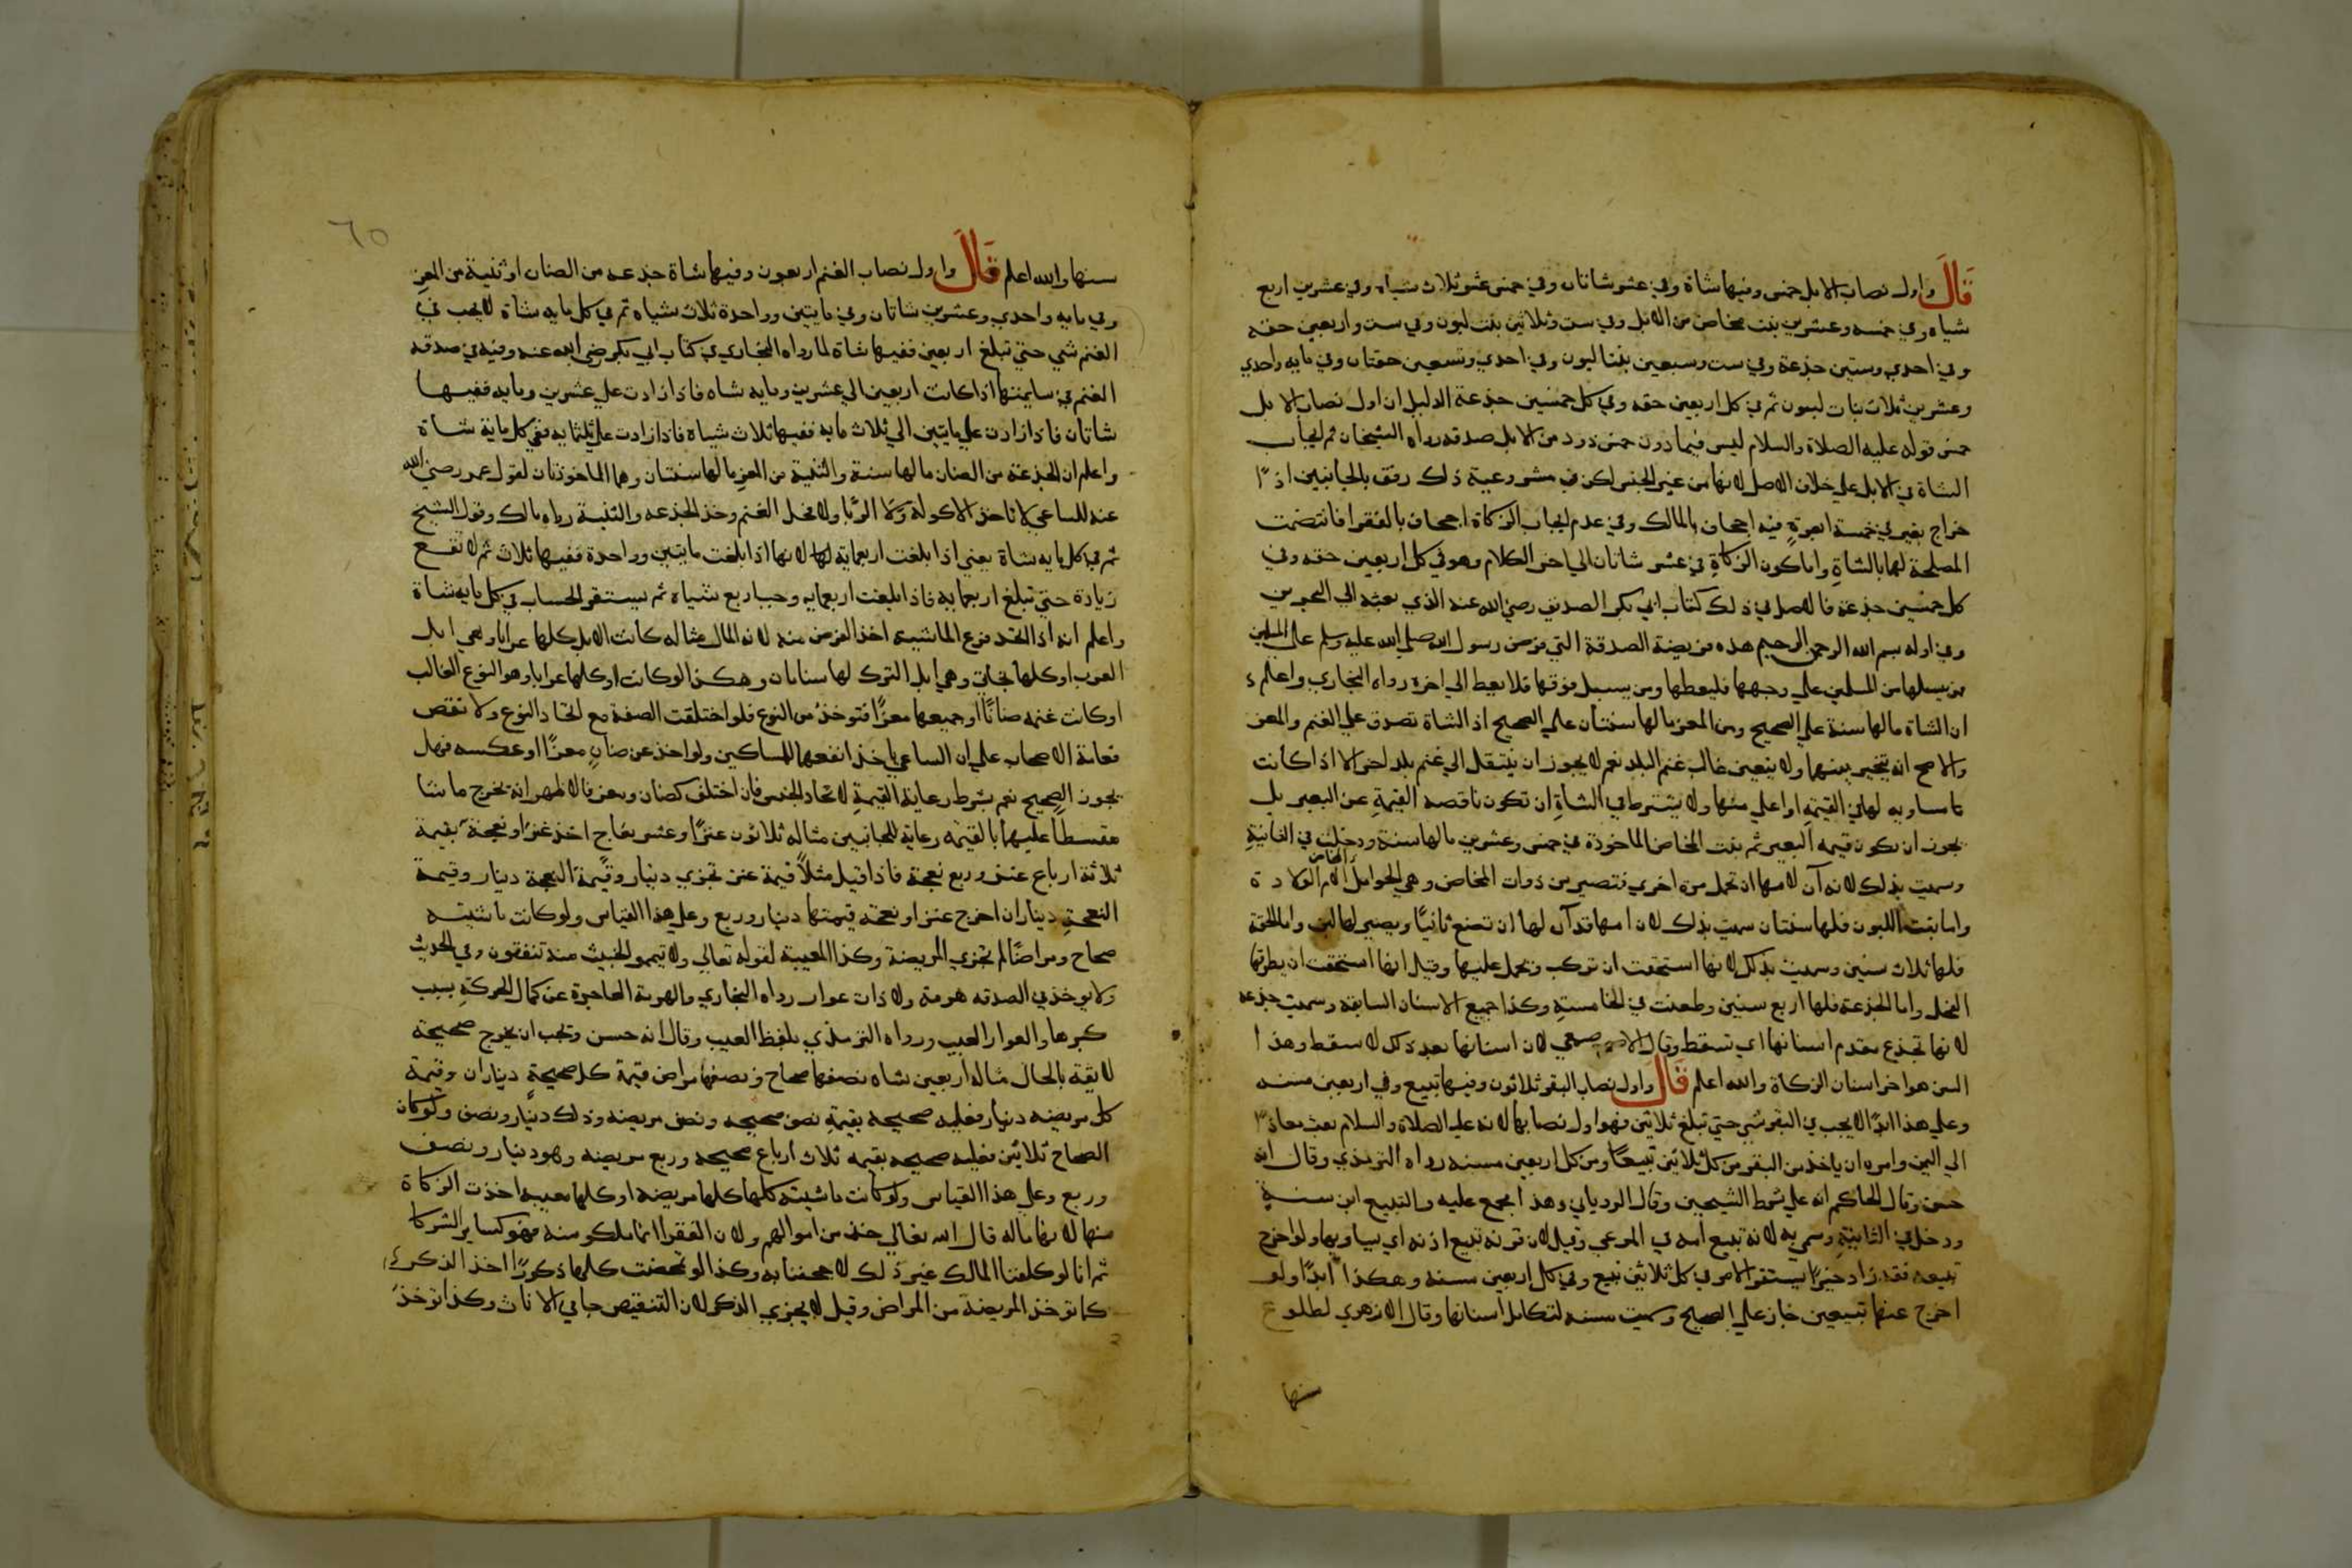 قال واول نصاب الابل خمس وفيها شاة وفي عشر شاتان وفي خمس عشر ثلاث شياه وفي عشرين اربع
شياه وفي خمسه وعشرين بنت مخاض من الابل وفي ست وثلاثين بنت لبون وفي ست واربعين حقه
وفي احدي وستين جذعة وفي ست وسبعين بنتا لبون وفي احدي وتسعين حقتان وفي مايه واحدي
وعشرين ثلاث بنات لبون ثم في كل اربعين حقه وفي كل خمسين جذعة الدليل ان اول نصاب الابل
خمس قوله عليه الصلاة والسلام ليس فيما دون خمس ذود من الابل صدقه رواه الشيخان ثم ايجاب
الشاة في الابل علي خلاف الاصل لانها من غير الجنس لكن في مشروعية ذلك رفق بالجانبين اذ
خراج بعير في خمسة ابعرة فيه اجحاف بالمالك وفي عدم ايجاب الزكاة اجحاف بالفقرا فاقتضت
المصلحة لهما بالشاة واما كون الزكاة في عشر شاتان الي اخر الكلام وهو في كل اربعين حقه وفي
كل خمسين جذعة فالاصل في ذلك كتاب ابي بكر الصديق رضي الله عنه الذي بعثه الي البحرين
وفي اوله بسم الله الرحمن الرحيم هذه فريضة الصدقة التي فرض رسول الله صلي الله عليه وسلم علي المسلمين
فمن يسيلها من المسلمين علي وجهها فليعطها ومن يسيل فوقها فلا يعط الي اخره رواه البخاري واعلم
ان الشاة مالها سنة علي الصحيح ومن المعز مالها سنتان علي الصحيح اذ الشاة تصدق علي الغنم والمعز
والاصح انه يتخير بينهما ولا يتعين غالب غنم البلد نعم لا يجوز ان ينتقل الي غنم بلد اخر الا اذا كانت
مساويه لها في القيمة او اعلي منها ولا يشترط في الشاة ان تكون ناقصه القيمة عن البعير بل
يجوز ان يكون قيمه البعير ثم بنت المخاض الماخوذة في خمس وعشرين مالها سنة ودخلت في الثانية
وسميت بذلك لانه آن لامها ان تحمل مرة اخري فتصير من ذوات المخاض وهي الحوامل المخاض الم الولادة
واما بنت اللبون فلها سنتان سميت بذلك لان امها قد آن لها ان تضع ثانيا ويصير لها لبن واما الحقة
فلها ثلاث سنين وسميت بذلك لانها استحقت ان تركب ويحمل عليها وقيل انها استحقت ان يطرقها
الفحل واما الجذعة فلها اربع سنين وطعنت في الخامسة وكذا جميع الاسنان السابقه وسميت جذعه
لانها تجذع مقدم اسنانها اي تسقط وقال الاصمعي لان اسنانها بعد ذلك لا تسقط وهذا
السن هو اخر اسنان الزكاة والله اعلم قال واول نصاب البقر ثلاثون وفيها تبيع وفي اربعين مسنه
وعلي هذا ابدا لا يجب في البقر شي حتي تبلغ ثلاثين فهو اول نصابها لانه عليه الصلاة والسلام بعث معاذا
الي اليمن وامره ان ياخذ من البقر من كل ثلاثين تبيعا ومن كل اربعين مسنه رواه الترمذي وقال انه
حسن وقال الحاكم انه علي شرط الشيخين وقال الروياني وهذا مجمع عليه والتبيع ابن سنة
ودخل في الثانية وسمي به لانه تبيع امه في المرعي وقيل لان قرنه تبيع اذنه اي يساويها ولو اخرج
تبيعه فقد زاد خيرا يستقر الامر في كل ثلاثين تبيع وفي كل اربعين مسنه وهكذا ابدا ولو
اخرج عنها تبيعين جاز علي الصحيح وسميت مسنه لتكامل اسنانها وقال الازهري لطلوع
سنها
٦٥
سنها والله اعلم قال واول نصاب الغنم اربعون وفيها شاة جذعه من الضان او ثنية من المعز
وفي مايه واحدي وعشرين شاتان وفي مايتين وواحدة ثلاث شياه ثم في كل مايه شاة لا يجب في
الغنم شي حتي تبلغ اربعين ففيها شاة لما رواه البخاري في كتاب ابي بكر رضي الله عنه وفيه في صدقه
الغنم في سايمتها اذا كانت اربعين الي عشرين ومايه شاه فاذا زادت علي عشرين ومايه ففيها
شاتان فاذا زادت علي مايتين الي ثلاث مايه ففيها ثلاث شياه فاذا زادت علي ثلثمايه ففي كل ماية شاة
واعلم ان الجذعة من الضان مالها سنة والثنية من المعز مالها سنتان وهما الماخوذتان لقول عمر رضي الله
عنه للساعي لا تاخذ الاكولة ولا الربا ولا فحل الغنم وخذ الجذعه والثنية رواه مالك وقول الشيخ
ثم في كل مايه شاة يعني اذا بلغت اربعماية لها لانها اذا بلغت مايتين وواحدة ففيها ثلاث ثم لا تقع
زيادة حتي تبلغ اربعمايه فاذا بلغت اربعمايه وجب اربع شياه ثم يستقر الحساب في كل مايه شاة
واعلم انه اذا اتحد نوع الماشية اخذ الفرض منه لانه المال مثاله كانت الابل كلها عرابا وهي ابل
العرب او كلها بخاتي وهي ابل الترك لها سنامان وهكذا لو كانت او كلها عرابا وهو النوع الغالب
او كانت غنمه ضانا او جميعها معزا فتوخذ من النوع فلو اختلفت الصفة مع اتحاد النوع ولا نقص
فعامة الاصحاب علي ان الساعي ياخذ انفعها للمساكين ولو اخذ عن ضان معزا او عكسه فهل
يجوز الصحيح نعم بشرط رعاية القيمة لاتحاد الجنس فان اختلف كضان ومعز فالاظهر انه يخرج ما شا
مقسطا عليهما بالقيمة رعاية للجانبين مثاله ثلاثون عنزا وعشر نعاج اخذ عنزا او نعجة بقيمة
ثلاثة ارباع عنز وربع نعجة فاذا قيل مثلا قيمة عنز تجزي دينار وقيمة النعجة دينار وقيمة
النعجة ديناران اخرج عنزا او نعجة قيمتها دينار وربع وعلي هذا القياس ولو كانت ماشيته
صحاح ومراضا لم تجزي المريضة وكذا المعيبة لقوله تعالي ولا تيمموا الخبيث منه تنفقون وفي الحديث
ولا يوخذ في الصدقه هرمة ولا ذات عوار رواه البخاري والهرمة العاجزة عن كمال الحركة بسبب
كبرها والعوار العيب ورواه الترمذي بلفظ العيب وقال انه حسن وتجب ان يخرج صحيحة
لايقة بالحال مثاله اربعين شاه نصفها صحاح ونصفها مراض قيمة كل صحيحة ديناران وقيمة
كل مريضه دينار فعليه صحيحة بقيمة نصف صحيحه ونصف مريضه وذلك دينار ونصف ولو كان
الصحاح ثلاثين فعليه صحيحه بقيمه ثلاث ارباع صحيحه وربع مريضه وهو دينار ونصف
وربع وعلي هذا القياس ولو كانت ماشيته كلها كلها مريضه او كلها معيبه اخذت الزكاة
منها لانها ماله قال الله تعالي خذ من اموالهم ولان الفقرا انما ملكو منه فهو كساير الشركا
ثم انا لو كلفنا المالك غير ذلك لاجحفنا به وكذا لو تمحضت كلها ذكورا اخذ الذكر
كما توخذ المريضة من المراض وقيل لا يجزي الذكر لان التنقيص جا في الاناث وكذا توخذ